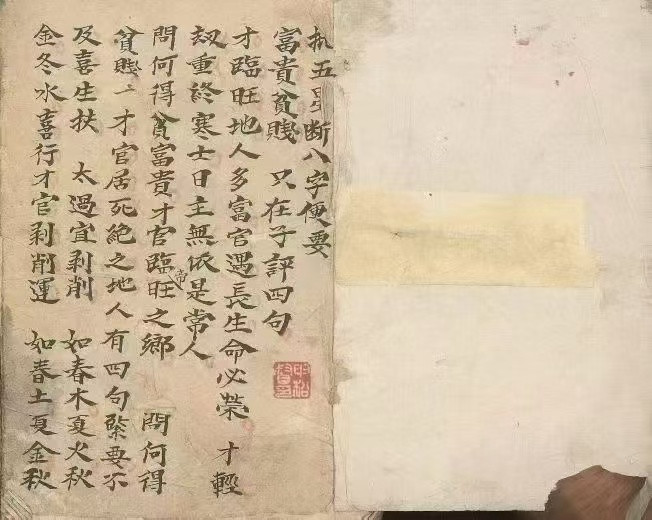 五星断八字便要
富貴貧賤 只在子評四句
才臨旺地人多富官遇長生命必榮 才輕
刼重終寒士日主無依是常人
問何得貧富貴才官臨帝旺之鄉 問何得
貧賤二才官居死絕之地人有四句緊要不
及喜生扶 太過宜剥削 如春木夏火秋
金冬水喜行才官剥削運 如春土夏金秋